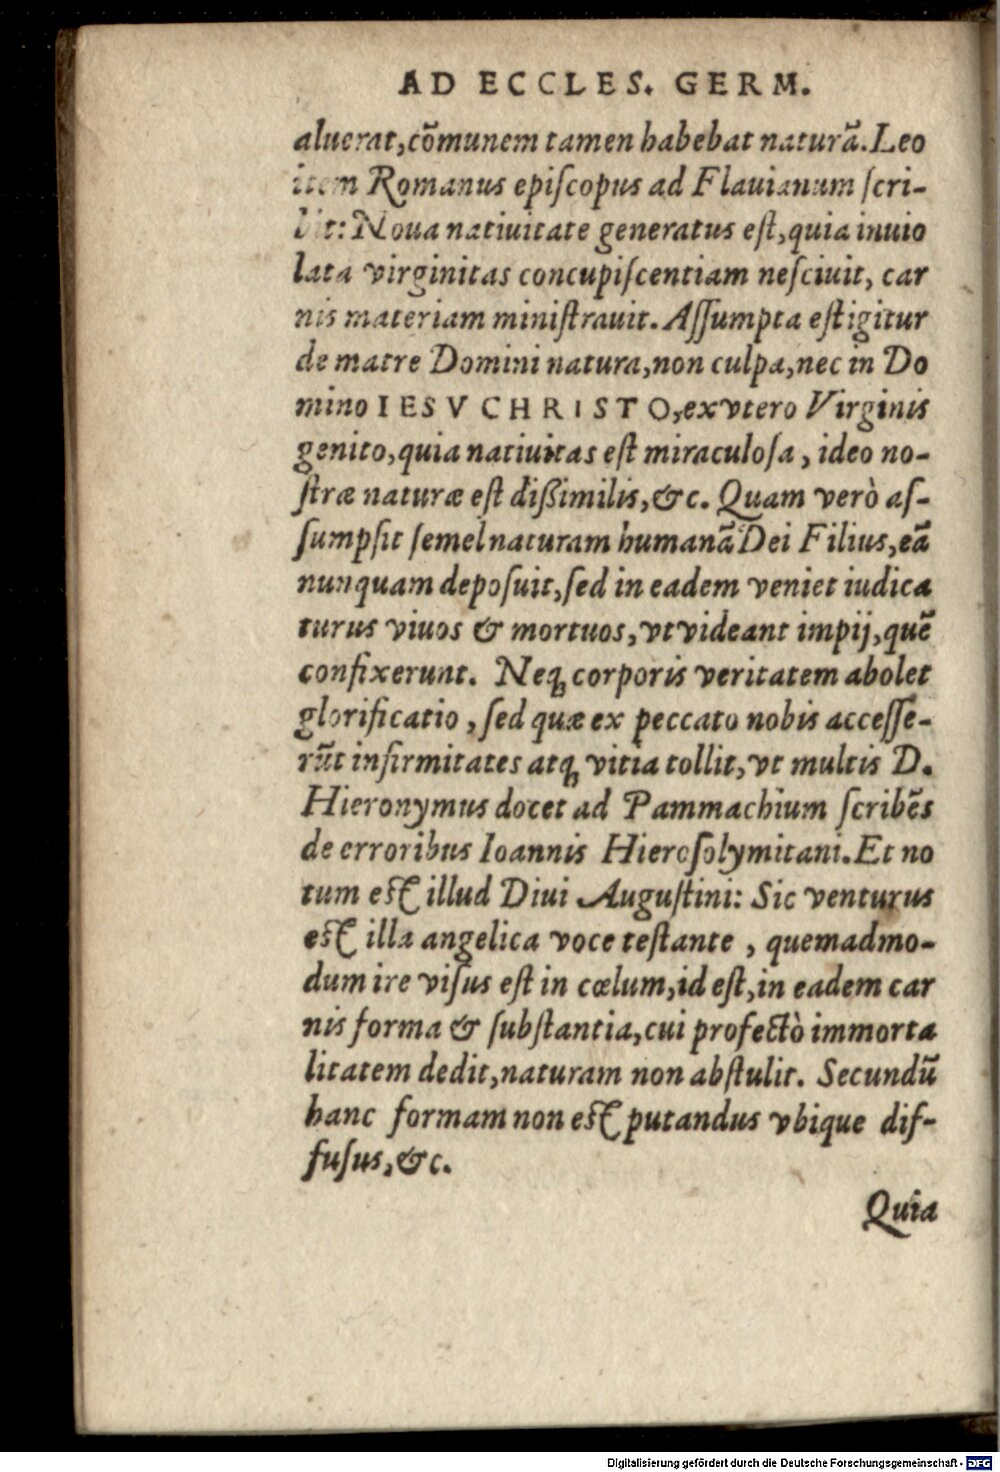 AD ECCLES. GERM.
aluerat, cōmunem tamen habebat naturā. Leo
item Romanus episcopus ad Flauianum scri-
bit: Noua natiuitate generatus est, quia inuio
lata virginitas concupiscentiam nesciuit, car
nis materiam ministrauit. Assumpta est igitur
de matre Domini natura, non culpa, nec in Do
mino IESV CHRISTO, ex vtero Virginis
genito, quia natiuitas est miraculosa, ideo no-
stræ naturæ est dißimilis, &c. Quam verò as-
sumpsit semel naturam humanā Dei Filius, eā
nunquam deposuit, sed in eadem veniet iudica
turus viuos & mortuos, vt videant impij, quē
confixerunt. Neq́ corporis veritatem abolet
glorificatio, sed quæ ex peccato nobis accesse-
rūt infirmitates atq́ vitia tollit, vt multis D.
Hieronymus docet ad Pammachium scribēs
de erroribus Ioannis Hierosolymitani. Et no
tum est illud Diui Augustini: Sic venturus
est illa angelica voce testante, quemadmo-
dum ire visus est in cœlum, id est, in eadem car
nis forma & substantia, cui profectò immorta
litatem dedit, naturam non abstulit. Secundū
hanc formam non est putandus vbique dif-
fusus, &c.
Quia
Digitalisierung gefördert durch die Deutsche Forschungsgemeinschaft - DFG